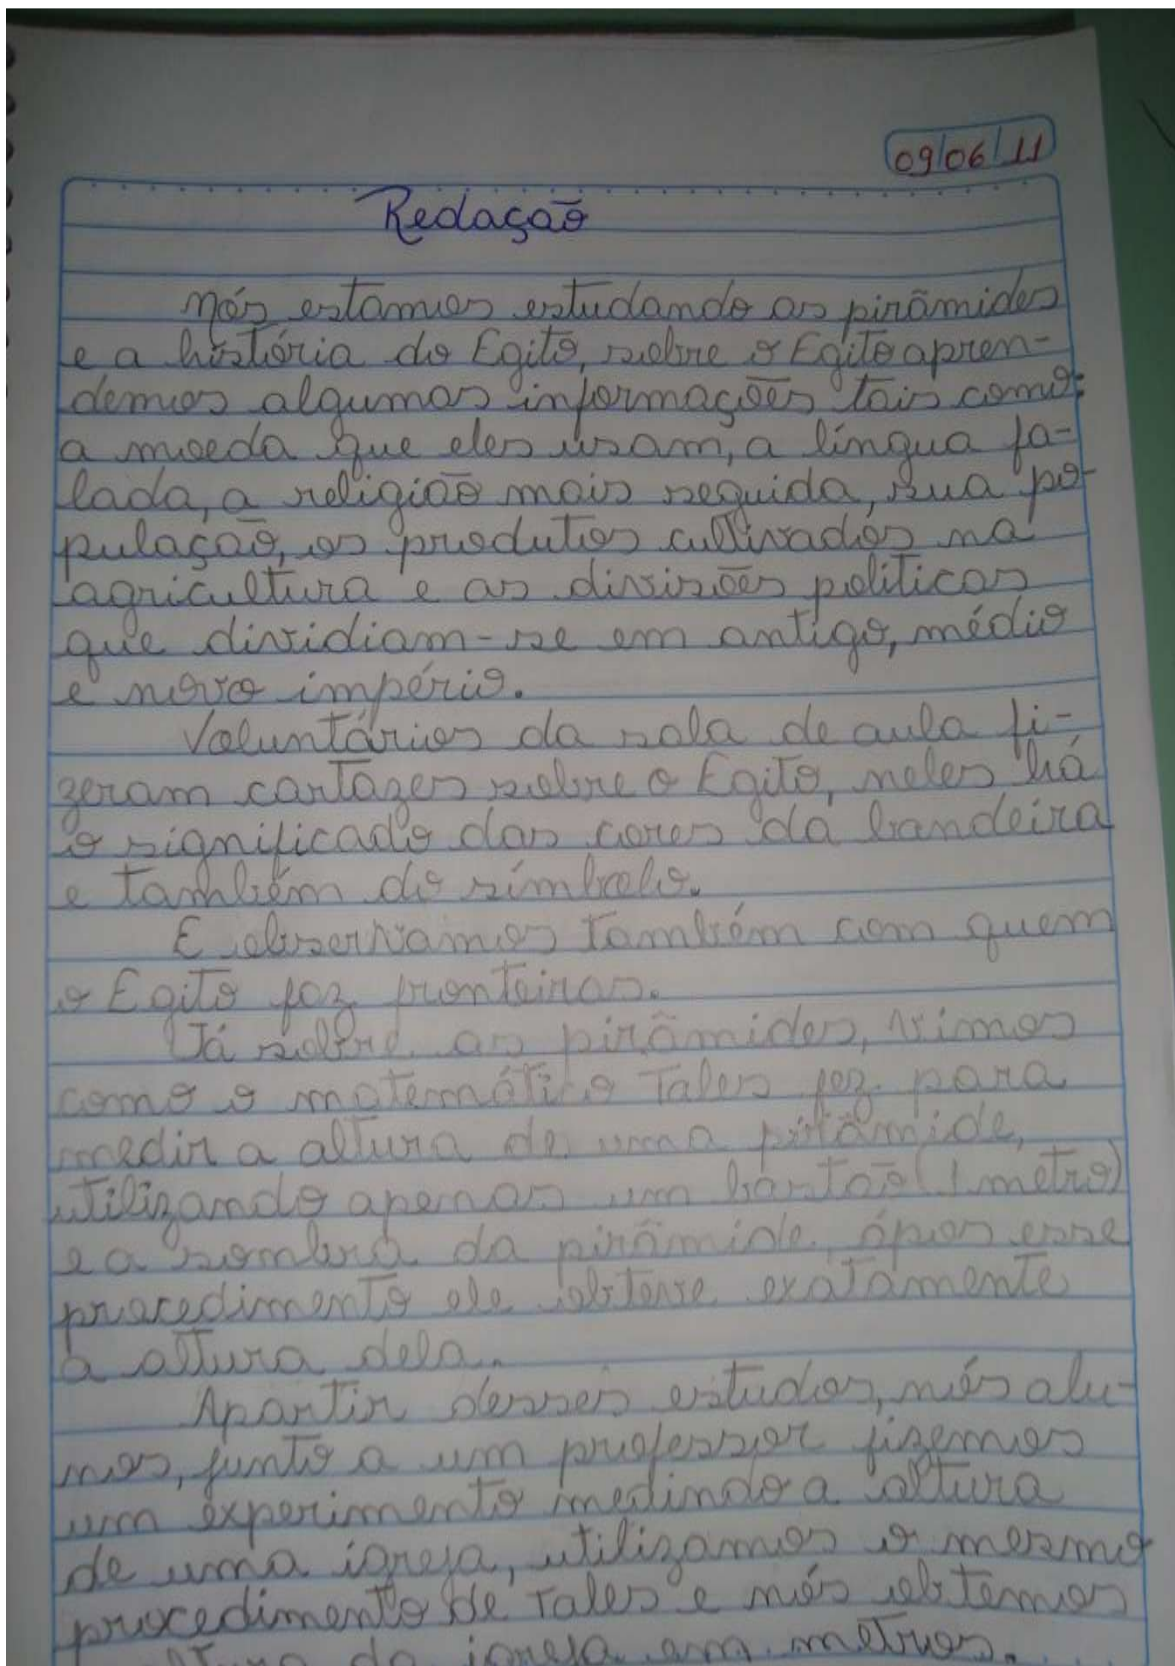 09/06/11
Redação
Nós estamos estudando as pirâmides
e a história do Egito, sobre o Egito apren-
demos algumas informações tais como:
a moeda que eles usam, a língua fa-
lada, a religião mais seguida, sua po-
pulação, os produtos cultivados na
agricultura e as divisões políticas
que dividiam-se em antigo, médio
e novo império.
Voluntários da sala de aula fi-
zeram cartazes sobre o Egito, neles há
o significado das cores da bandeira
e também do símbolo.
E observamos também com quem
o Egito faz fronteiras.
Já sobre as pirâmides, vimos
como o matemático Tales fez para
medir a altura de uma pirâmide,
utilizando apenas um bastão (1 metro)
e a sombra da pirâmide, ápos esse
procedimento ele obteve exatamente
a altura dela.
Apartir desses estudos, nós alu-
nos, junto a um professor fizemos
um experimento medindo a altura
de uma igreja, utilizamos o mesmo
procedimento de Tales e nós obtemos
da igreja em metros.